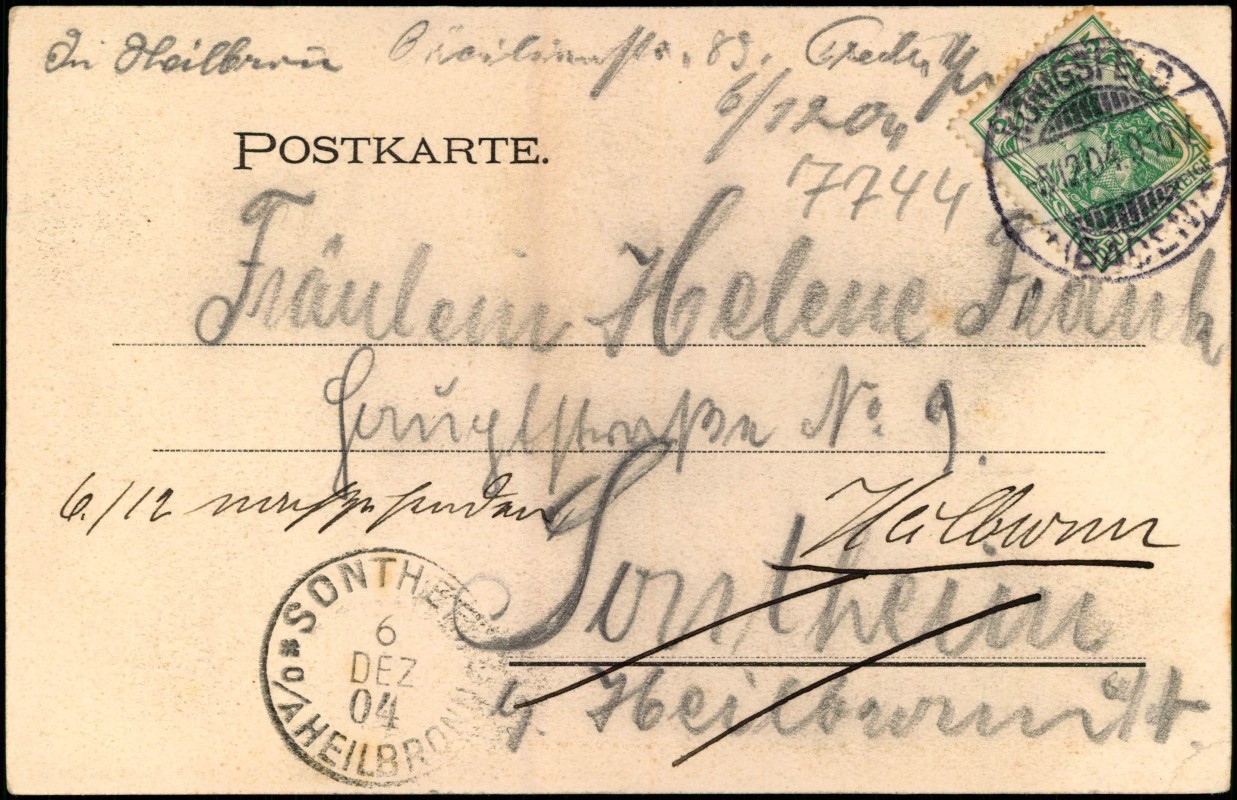 In Heilbronn Cäcilienstr. 89.
6/12 04
POSTKARTE.
7744
KÖNIGSFELD
5.12.04.
(BADEN)
REICH
Fräulein Helene Frank
Hauptstraße No. 9.
6./12 nachzusenden
Heilbronn
Sontheim
Heilbronn
SONTHEIM
6
DEZ
04
HEILBRONN